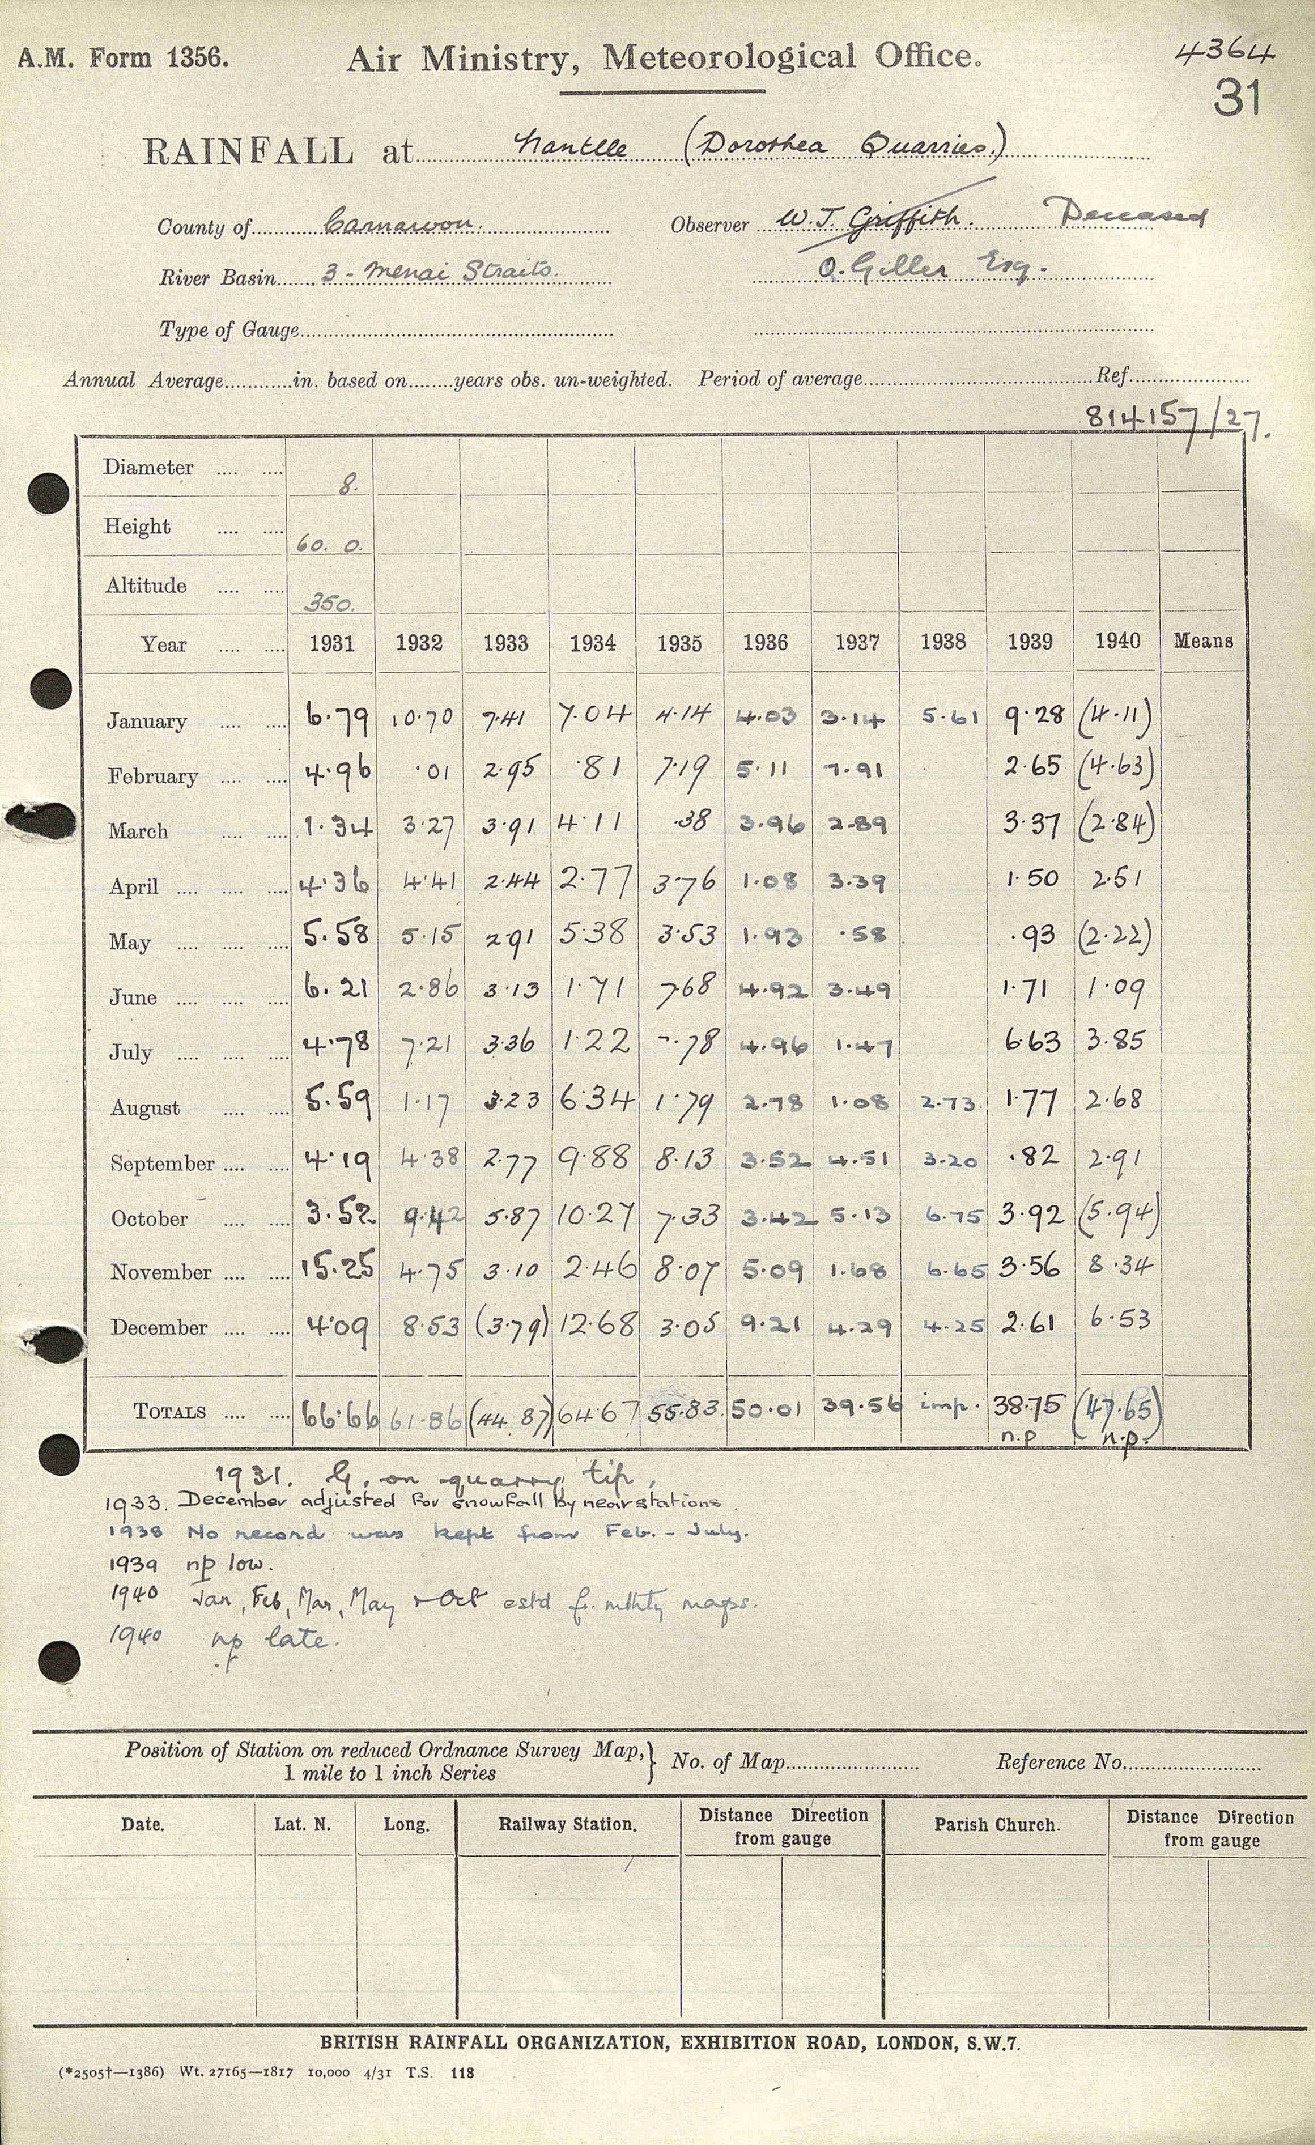 A.M. Form 1356. Air Ministry, Meteorological Office. 4364
31
RAINFALL at Nantlle (Dorothea Quarries.)
County of Carnarvon. Observer W. J. Griffith. Deceased
River Basin 3 - Menai Straits. O. Giller Esq.
Type of Gauge
Annual Average in. based on years obs. un-weighted. Period of average Ref.
814157/27.
Diameter 8.
Height 60. 0.
Altitude 350.
Year 1931 1932 1933 1934 1935 1936 1937 1938 1939 1940 Means
January 6.79 10.70 7.41 7.04 4.14 4.03 3.14 5.61 9.28 (4.11)
February 4.96 .01 2.95 .81 7.19 5.11 7.91 2.65 (4.63)
March 1.34 3.27 3.91 4.11 .38 3.96 2.89 3.37 (2.84)
April 4.36 4.41 2.44 2.77 3.76 1.08 3.39 1.50 2.51
May 5.58 5.15 2.91 5.38 3.53 1.93 .58 .93 (2.22)
June 6.21 2.86 3.13 1.71 7.68 4.92 3.49 1.71 1.09
July 4.78 7.21 3.36 1.22 .78 4.96 1.47 6.63 3.85
August 5.59 1.17 3.23 6.34 1.79 2.78 1.08 2.73 1.77 2.68
September 4.19 4.38 2.77 9.88 8.13 3.52 4.51 3.20 .82 2.91
October 3.52 9.42 5.87 10.27 7.33 3.42 5.13 6.75 3.92 (5.94)
November 15.25 4.75 3.10 2.46 8.07 5.09 1.68 6.65 3.56 8.34
December 4.09 8.53 (3.79) 12.68 3.05 9.21 4.29 4.25 2.61 6.53
TOTALS 66.66 61.86 (44.87) 64.67 55.83 50.01 39.56 imp. 38.75 (47.65)
n.p n.p.
1931. G. on quarry tip,
1933. December adjusted for snowfall by near stations
1938 No record was kept from Feb. - July.
1939 np low.
1940 Jan, Feb, Mar, May + Oct estd f. mthly maps.
1940 np late.
Position of Station on reduced Ordnance Survey Map, } No. of Map Reference No.
1 mile to 1 inch Series
Date. Lat. N. Long. Railway Station. Distance Direction from gauge Parish Church. Distance Direction from gauge
BRITISH RAINFALL ORGANIZATION, EXHIBITION ROAD, LONDON, S.W.7.
(*2505†—1386) Wt. 27165—1817 10,000 4/31 T.S. 118